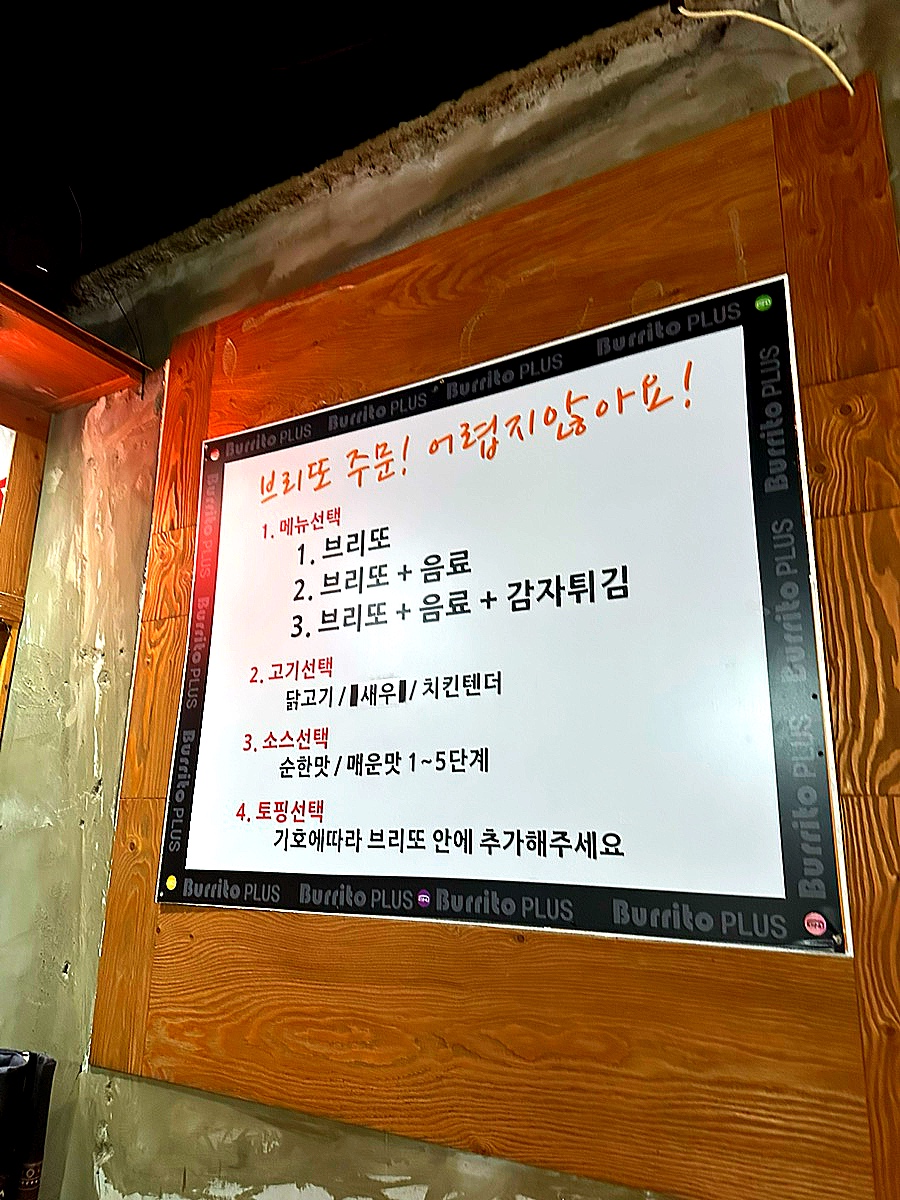 Burrito PLUS Burrito PLUS Burrito PLUS Burrito PLUS
브리또 주문! 어렵지않아요!
1. 메뉴선택
1. 브리또
2. 브리또 + 음료
3. 브리또 + 음료 + 감자튀김
2. 고기선택
닭고기 / 새우 / 치킨텐더
3. 소스선택
순한맛 / 매운맛 1~5단계
4. 토핑선택
기호에따라 브리또 안에 추가해주세요
Burrito PLUS
Burrito PLUS
Burrito PLUS
Burrito PLUS
Burrito PLUS
Burrito PLUS
Burrito PLUS Burrito PLUS Burrito PLUS Burrito PLUS